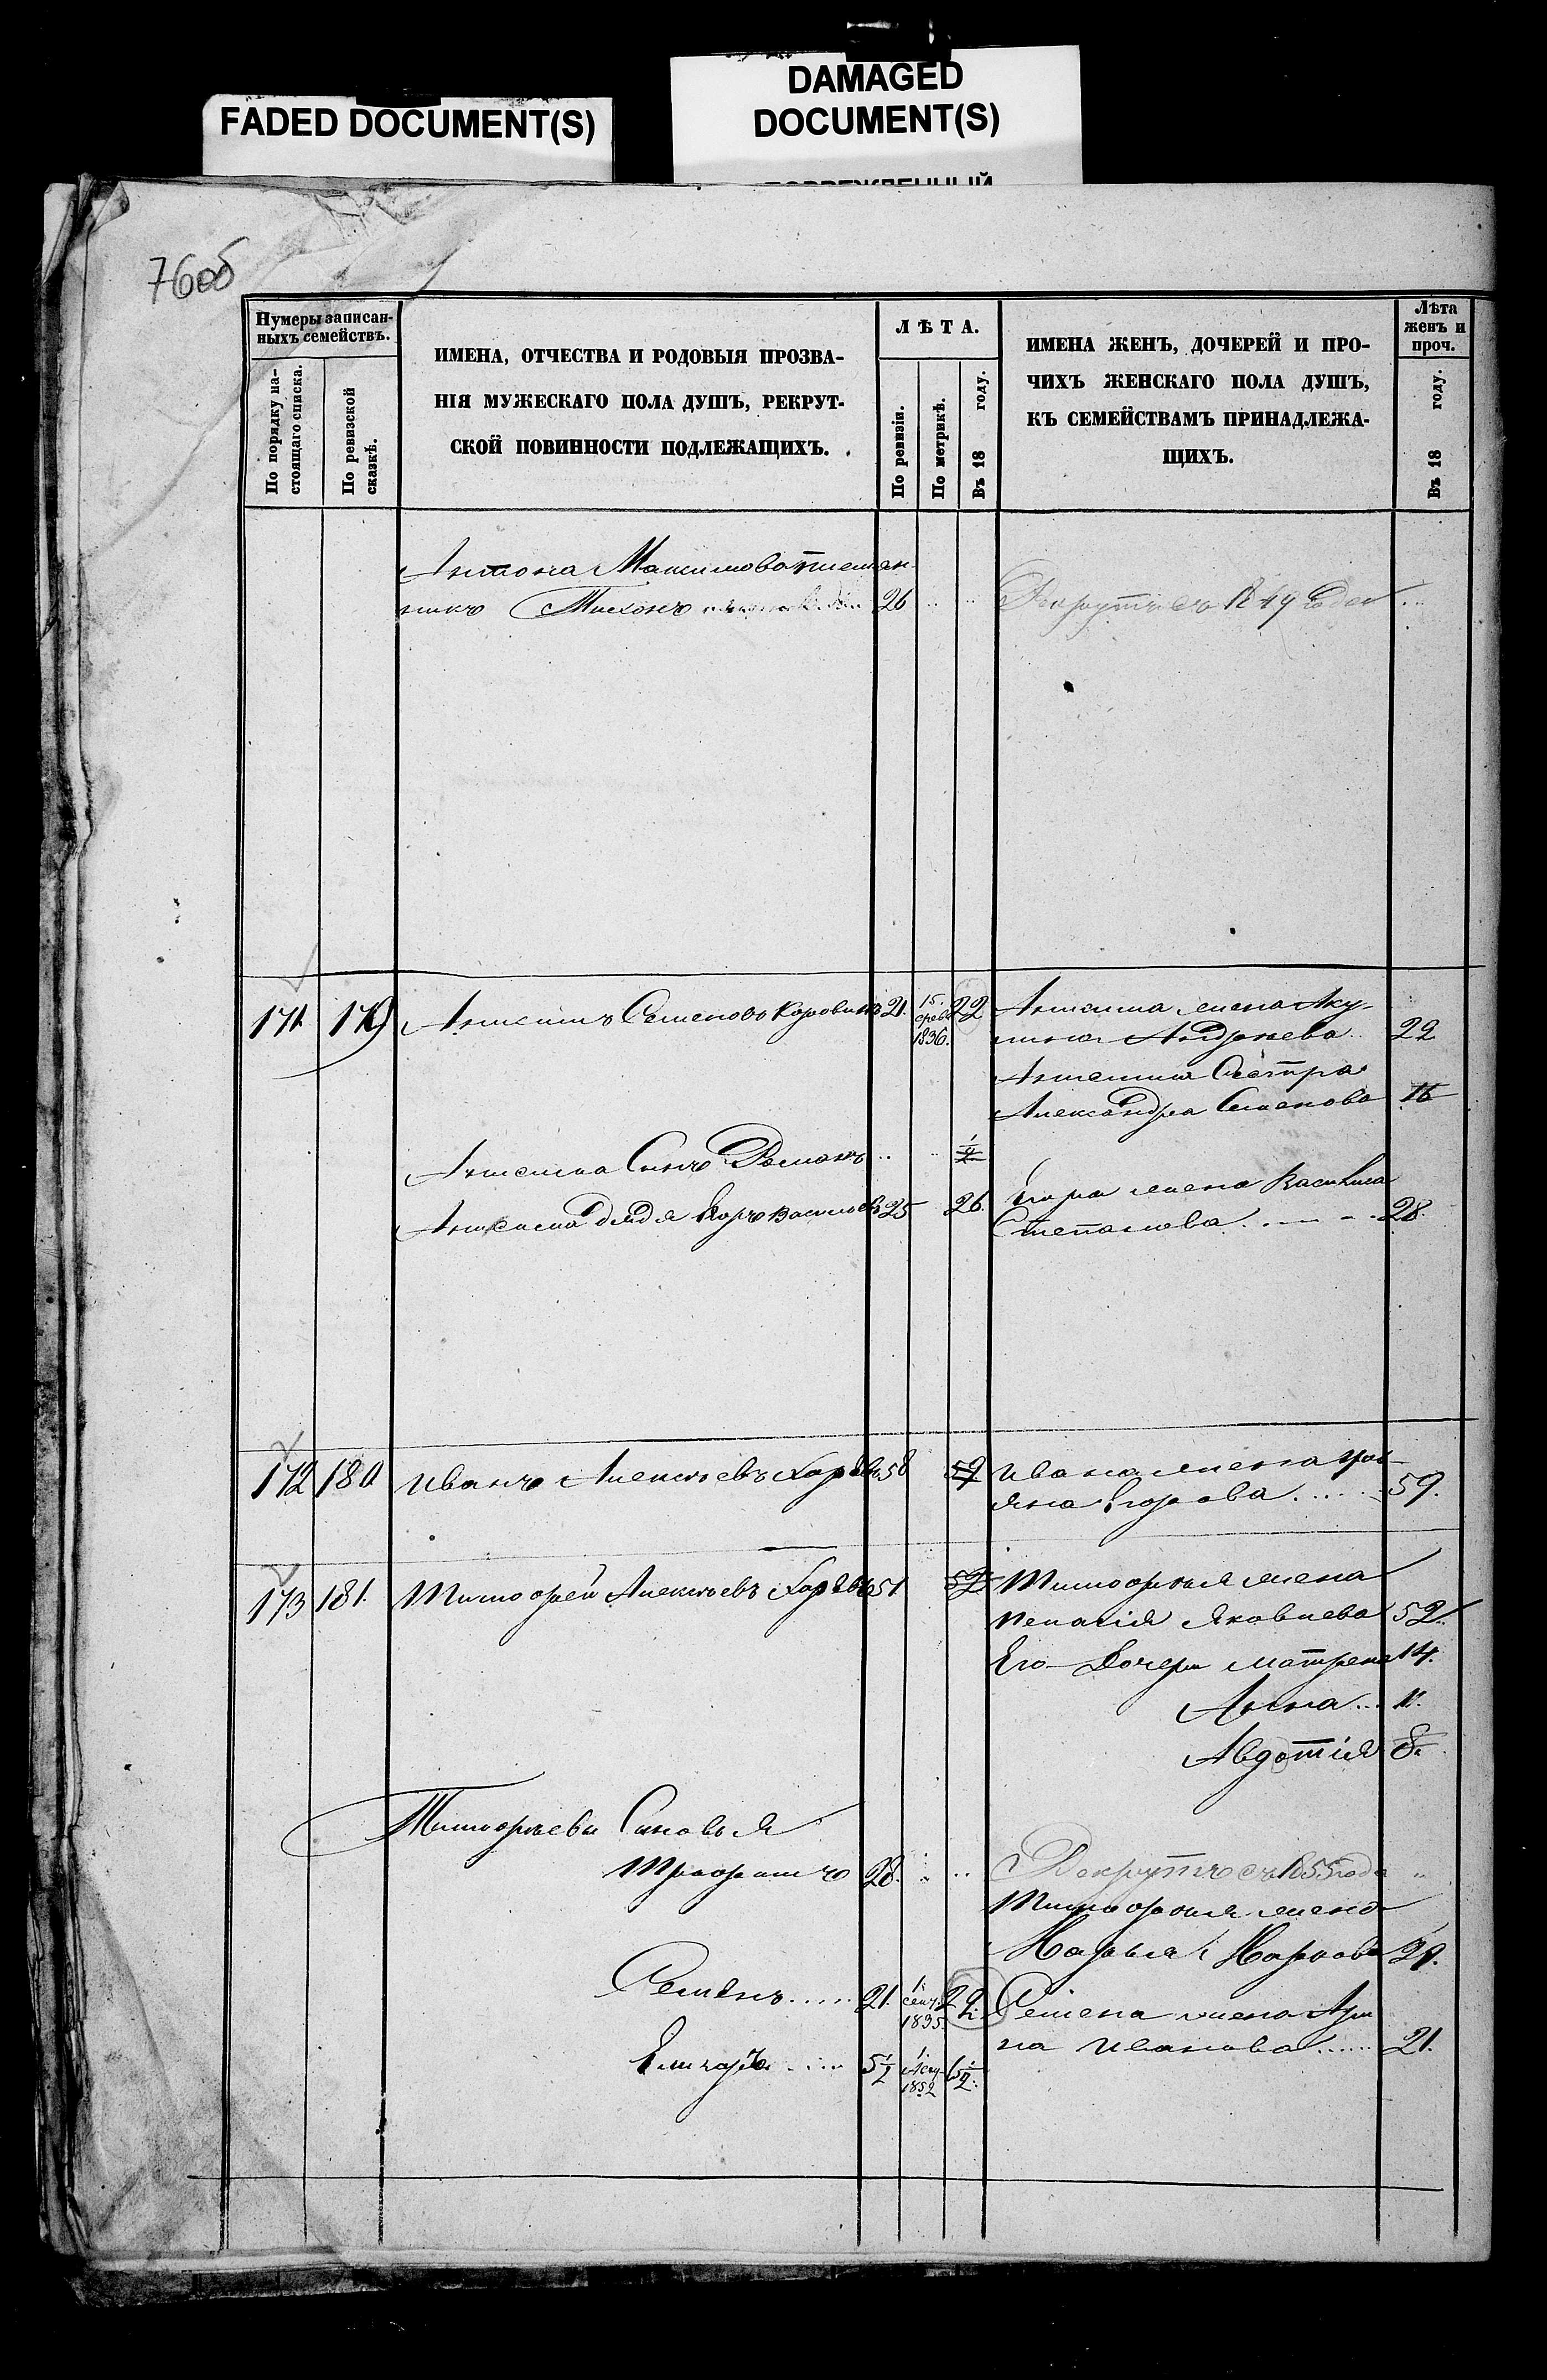 FADED DOCUMENT(S)
DAMAGED
DOCUMENT(S)
76об
Нумеры записан-
ныхъ семействъ.
По порядку на-
стоящаго списка.
По ревизской
сказкѣ.
ИМЕНА, ОТЧЕСТВА И РОДОВЫЯ ПРОЗВА-
НІЯ МУЖЕСКАГО ПОЛА ДУШЪ, РЕКРУТ-
СКОЙ ПОВИННОСТИ ПОДЛЕЖАЩИХЪ.
ЛѢТА.
По ревизіи.
По метрикѣ.
Въ 18 году.
ИМЕНА ЖЕНЪ, ДОЧЕРЕЙ И ПРО-
ЧИХЪ ЖЕНСКАГО ПОЛА ДУШЪ,
КЪ СЕМЕЙСТВАМЪ ПРИНАДЛЕЖА-
ЩИХЪ.
Лѣта
женъ и
проч.
Въ 18 году.
Антона Максимова племян
никъ Тихонъ 26
Рекрутъ съ 1849 года
171 179 Антипъ Семеновъ 21. 15. 1836. 22
жена Аку-
лина Андреева 22
Сестра
Александра Семенова 16
Сынъ Романъ
дядя Егоръ Васильевъ 25 26.
Егора жена Василиса
Степанова 28.
172 180 Иванъ Алексѣевъ 58 59
Ивана жена
Егорова 59.
173 181. Тимофей Алексѣевъ 51 52
Тимофея жена
Пелагія Яковлева 52.
Его Дочери Матрена 14.
Анна 11.
Авдотія 8.
Тимофѣевы Сыновья
Трофимъ 28.
Рекрутъ съ 1855 года
жена
Марья 29.
Семенъ 21. 1. сент. 1835. 22.
Семена жена Ари
на Иванова 21.
5½ 1852 6½